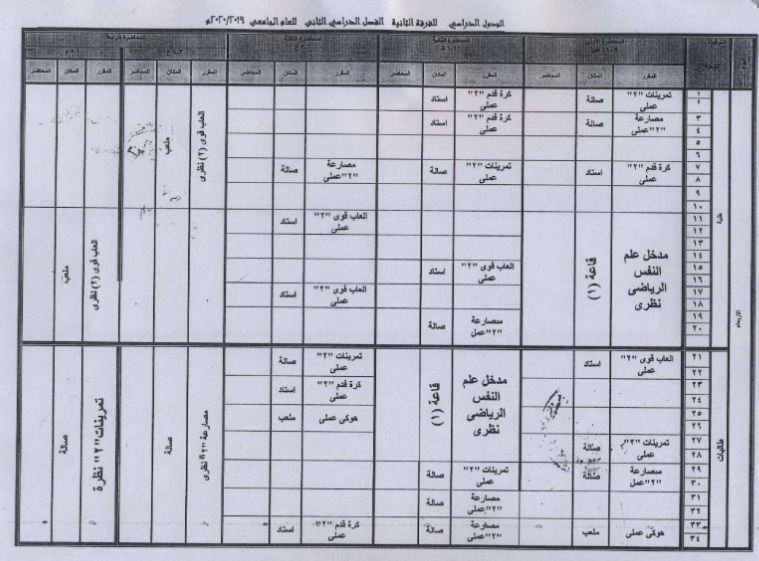 الجدول الدراسي للفرقة الثانية الفصل الدراسي الثاني للعام الجامعي ٢٠٢٠/٢٠١٩م
المحاضرة الأولى
المحاضرة الثانية
المحاضرة الرابعة
المقرر المكان المحاضر المقرر المكان المحاضر المقرر المكان المحاضر المقرر المكان المحاضر المقرر المكان المحاضر
الاربعاء
طلبة
١ تمرينات "٢" صالة كرة قدم "٢" استاد
٢ عملى عملى
٣ مصارعة صالة كرة قدم "٢" استاد
٤ "٢" عملى عملى
٥
٦
٧ كرة قدم "٢" استاد تمرينات "٢" صالة مصارعة صالة
٨ عملى عملى "٢" عملى
٩
١٠
العاب قوى (٢) نظرى
ملعب
١١ العاب قوى "٢" استاد
١٢ عملى
١٣
١٤
١٥ العاب قوى "٢" استاد
١٦ عملى
١٧ العاب قوى "٢" استاد
١٨ عملى
١٩ مصارعة صالة
٢٠ "٢" عمل
مدخل علم
النفس
الرياضى
نظرى
قاعة (١)
العاب قوى (٢) نظرى
ملعب
طالبات
٢١ العاب قوى "٢" استاد تمرينات "٢" صالة
٢٢ عملى عملى
٢٣ كرة قدم "٢" استاد
٢٤ عملى
٢٥ هوكى عملى ملعب
٢٦
٢٧ تمرينات "٢" صالة
٢٨ عملى
مدخل علم
النفس
الرياضى
نظرى
قاعة (١)
٢٩ مصارعة صالة تمرينات "٢" صالة
٣٠ "٢" عمل عملى
٣١ مصارعة صالة
٣٢ "٢" عملى
٣٣ هوكى عملى ملعب مصارعة صالة كرة قدم "٢" استاد
٣٤ "٢" عملى عملى
مصارعة "٢" نظرى
صالة
تمرينات "٢" نظرة
صالة